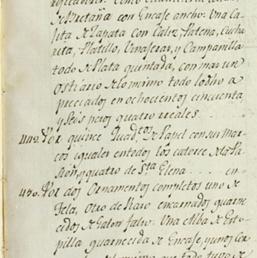 de Bretaña con Encaxe ancho. Una Ca
jita de Zapata con Caliz, Patena, Cucha
rita, Platillo, Vinageras, y Campanilla
todo de Plata quintada, con mas un
Ostiario de lo mismo todo lo dho a
preciados en ochocientos cincuenta
y seis pesos quatro reales.
Por quince Quad.os de Papel con sus mar
cos iguales entodos los catorce de la Pa
sion y quatro de S.ta Elena . . . . en
Por dos Ornamentos completos uno de
Tela, Otro de Raso encarnado guarne
cidos de Galon falso. Una Alba de
pilla guarnecida de Encaxe, y unos Cor